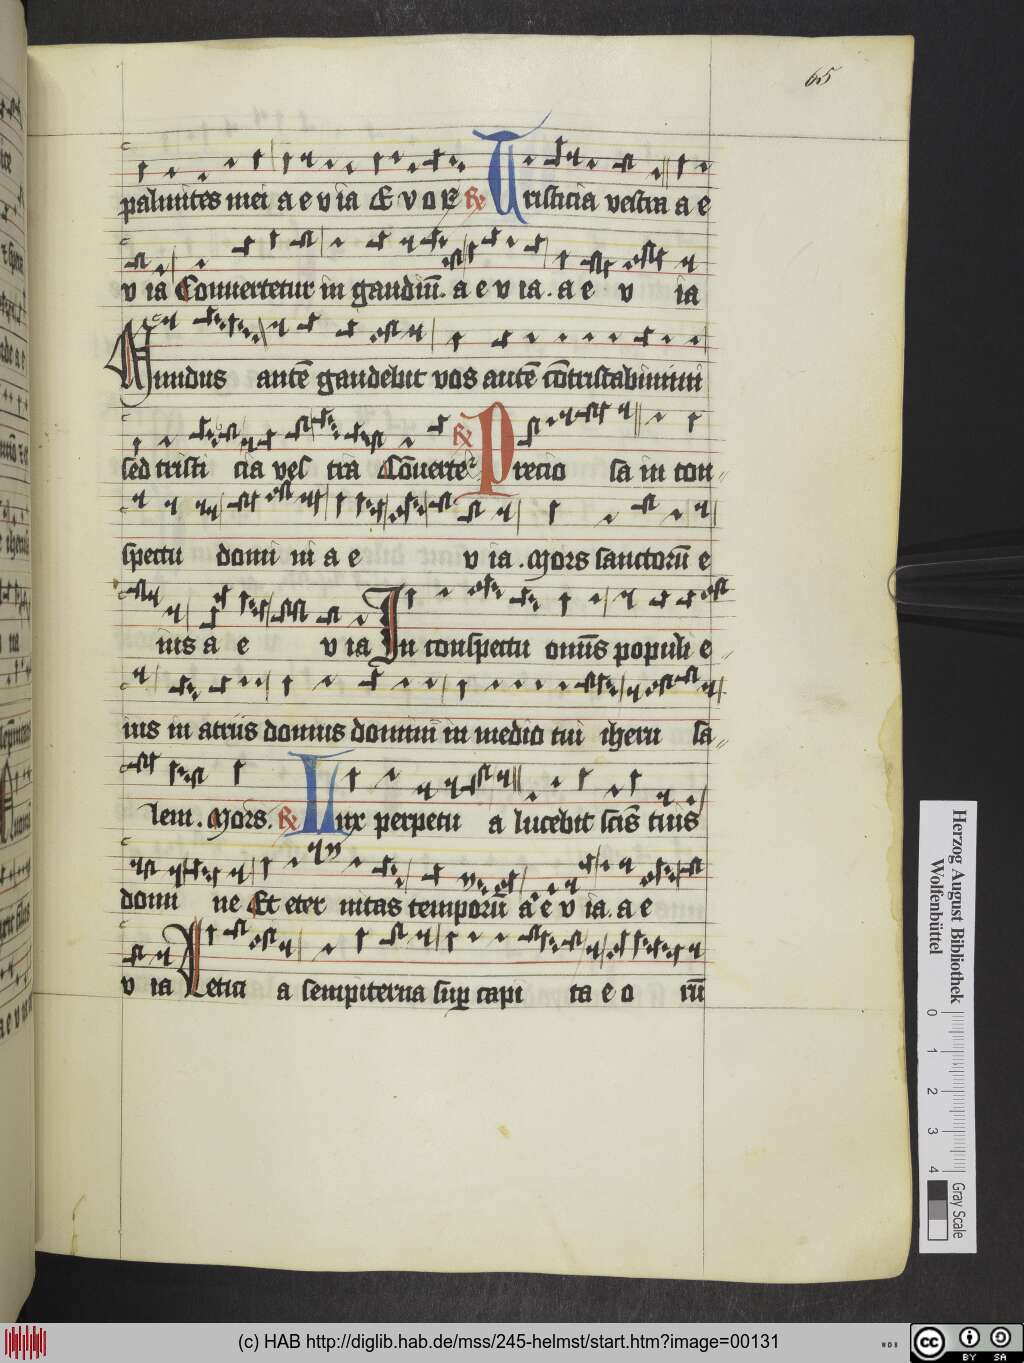 65
palmites mei a e v ia E v o v e R̃ Tristicia vestra a e
v ia Conuertetur in gaudiū. a e v ia. a e v ia
Mundus autē gaudebit vos autē cōtristabimini
sed tristi cia ves tra Cōuerteᵗ R̃ Precio sa in con
spectu domi ni a e v ia. Mors sanctorū e
ius a e v ia In conspectu omīs populi e
ius in atriis domus domini in medio tui iheru sa
lem. Mors. R̃ Lux perpetu a lucebit scīs tuis
domi ne Et eter nitas temporū a e v ia. a e
v ia Letici a sempiterna suꝑ capi ta e o rū
Herzog August Bibliothek
Wolfenbüttel
0 1 2 3 4
Gray Scale
(c) HAB http://diglib.hab.de/mss/245-helmst/start.htm?image=00131
WDB
cc BY SA